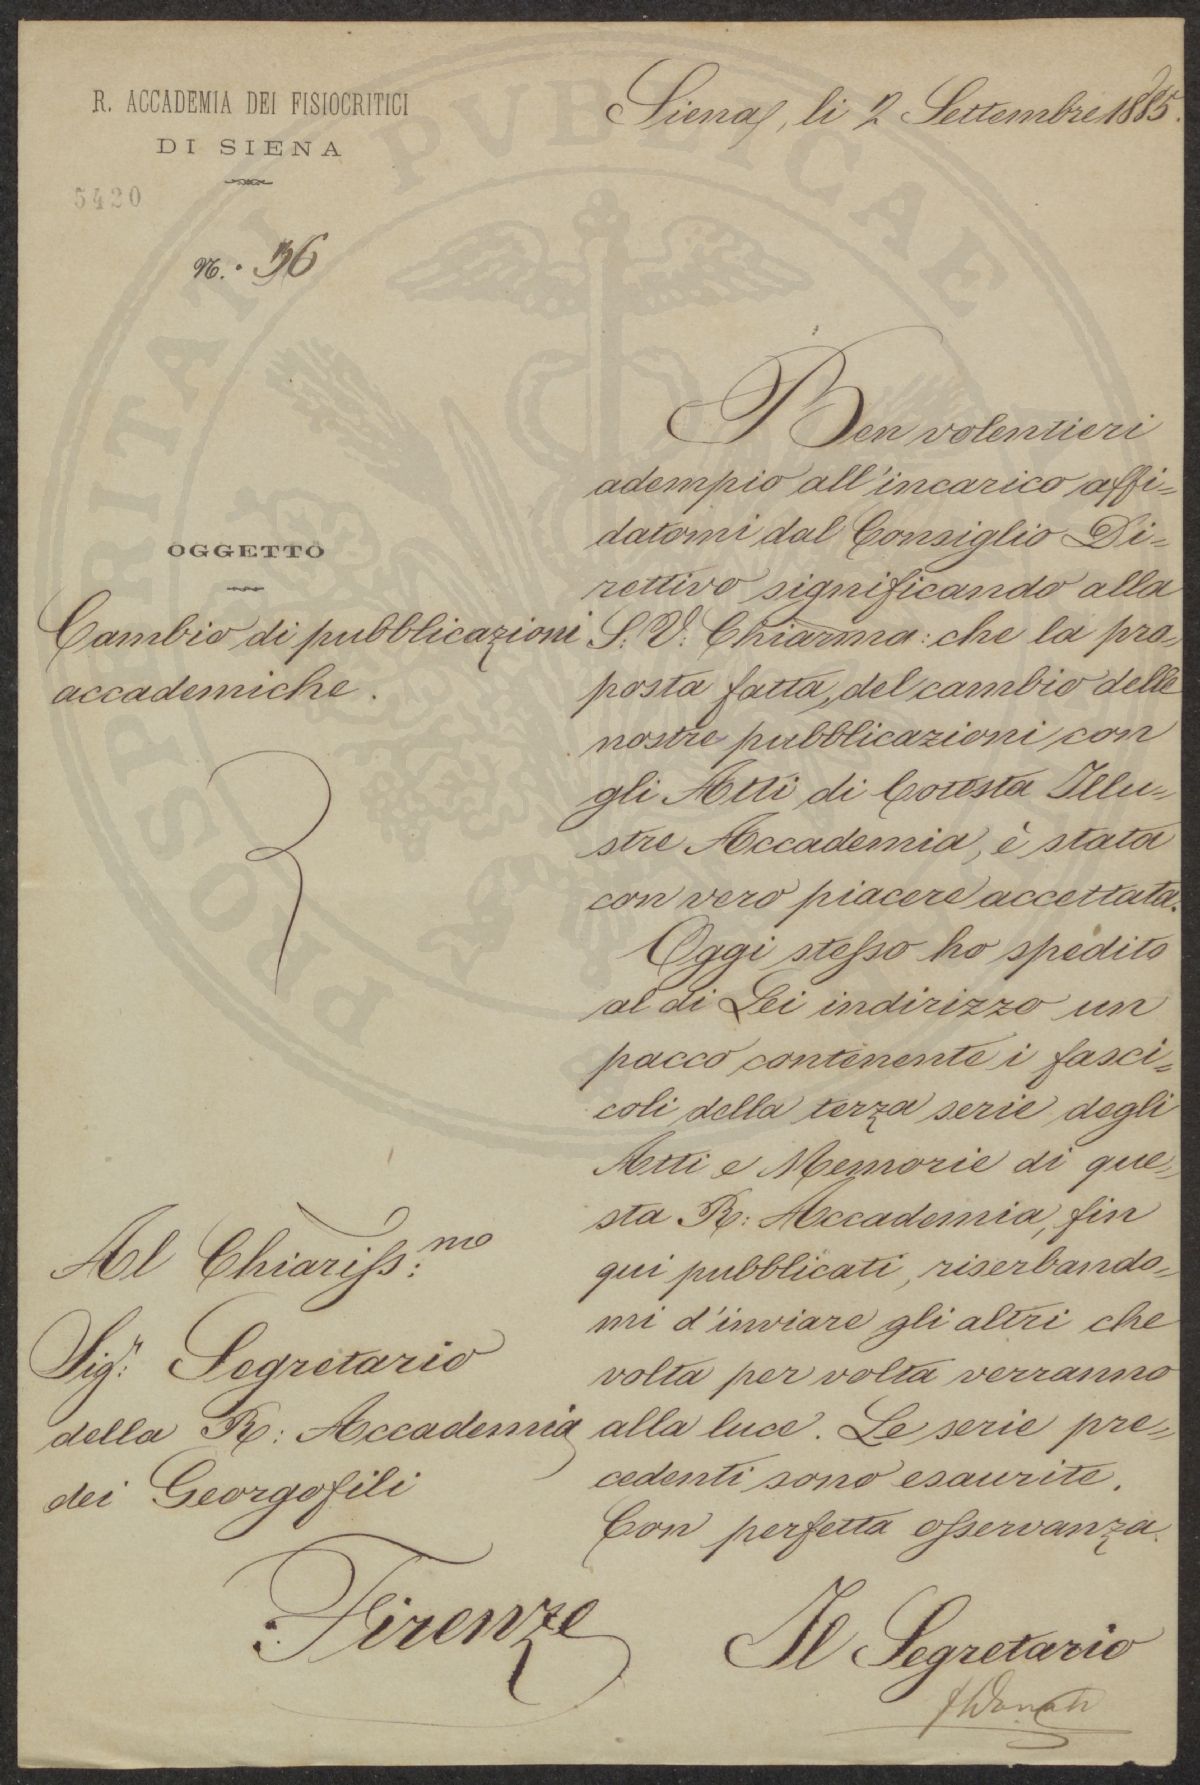 R. ACCADEMIA DEI FISIOCRITICI
DI SIENA
5420
N.° 36
Siena, li 2 Settembre 1885.
OGGETTO
Cambio di pubblicazioni
accademiche.
Ben volentieri
adempio all'incarico affi=
datomi dal Consiglio Di=
rettivo significando alla
S. V. Chiarma: che la pro=
posta fatta, del cambio delle
nostre pubblicazioni con
gli Atti di Cotesta Illu=
stre Accademia, è stata
con vero piacere accettata.
Oggi stesso ho spedito
al di Lei indirizzo un
pacco contenente i fasci=
coli della terza serie degli
Atti e Memorie di que=
sta R: Accademia, fin
qui pubblicati, riserbando=
mi d'inviare gli altri che
volta per volta verranno
alla luce. Le serie pre=
cedenti sono esaurite.
Con perfetta osservanza.
Il Segretario
Al Chiariss:mo
Sig:r Segretario
della R: Accademia
dei Georgofili
Firenze
PROSPERITATI PVBLICAE